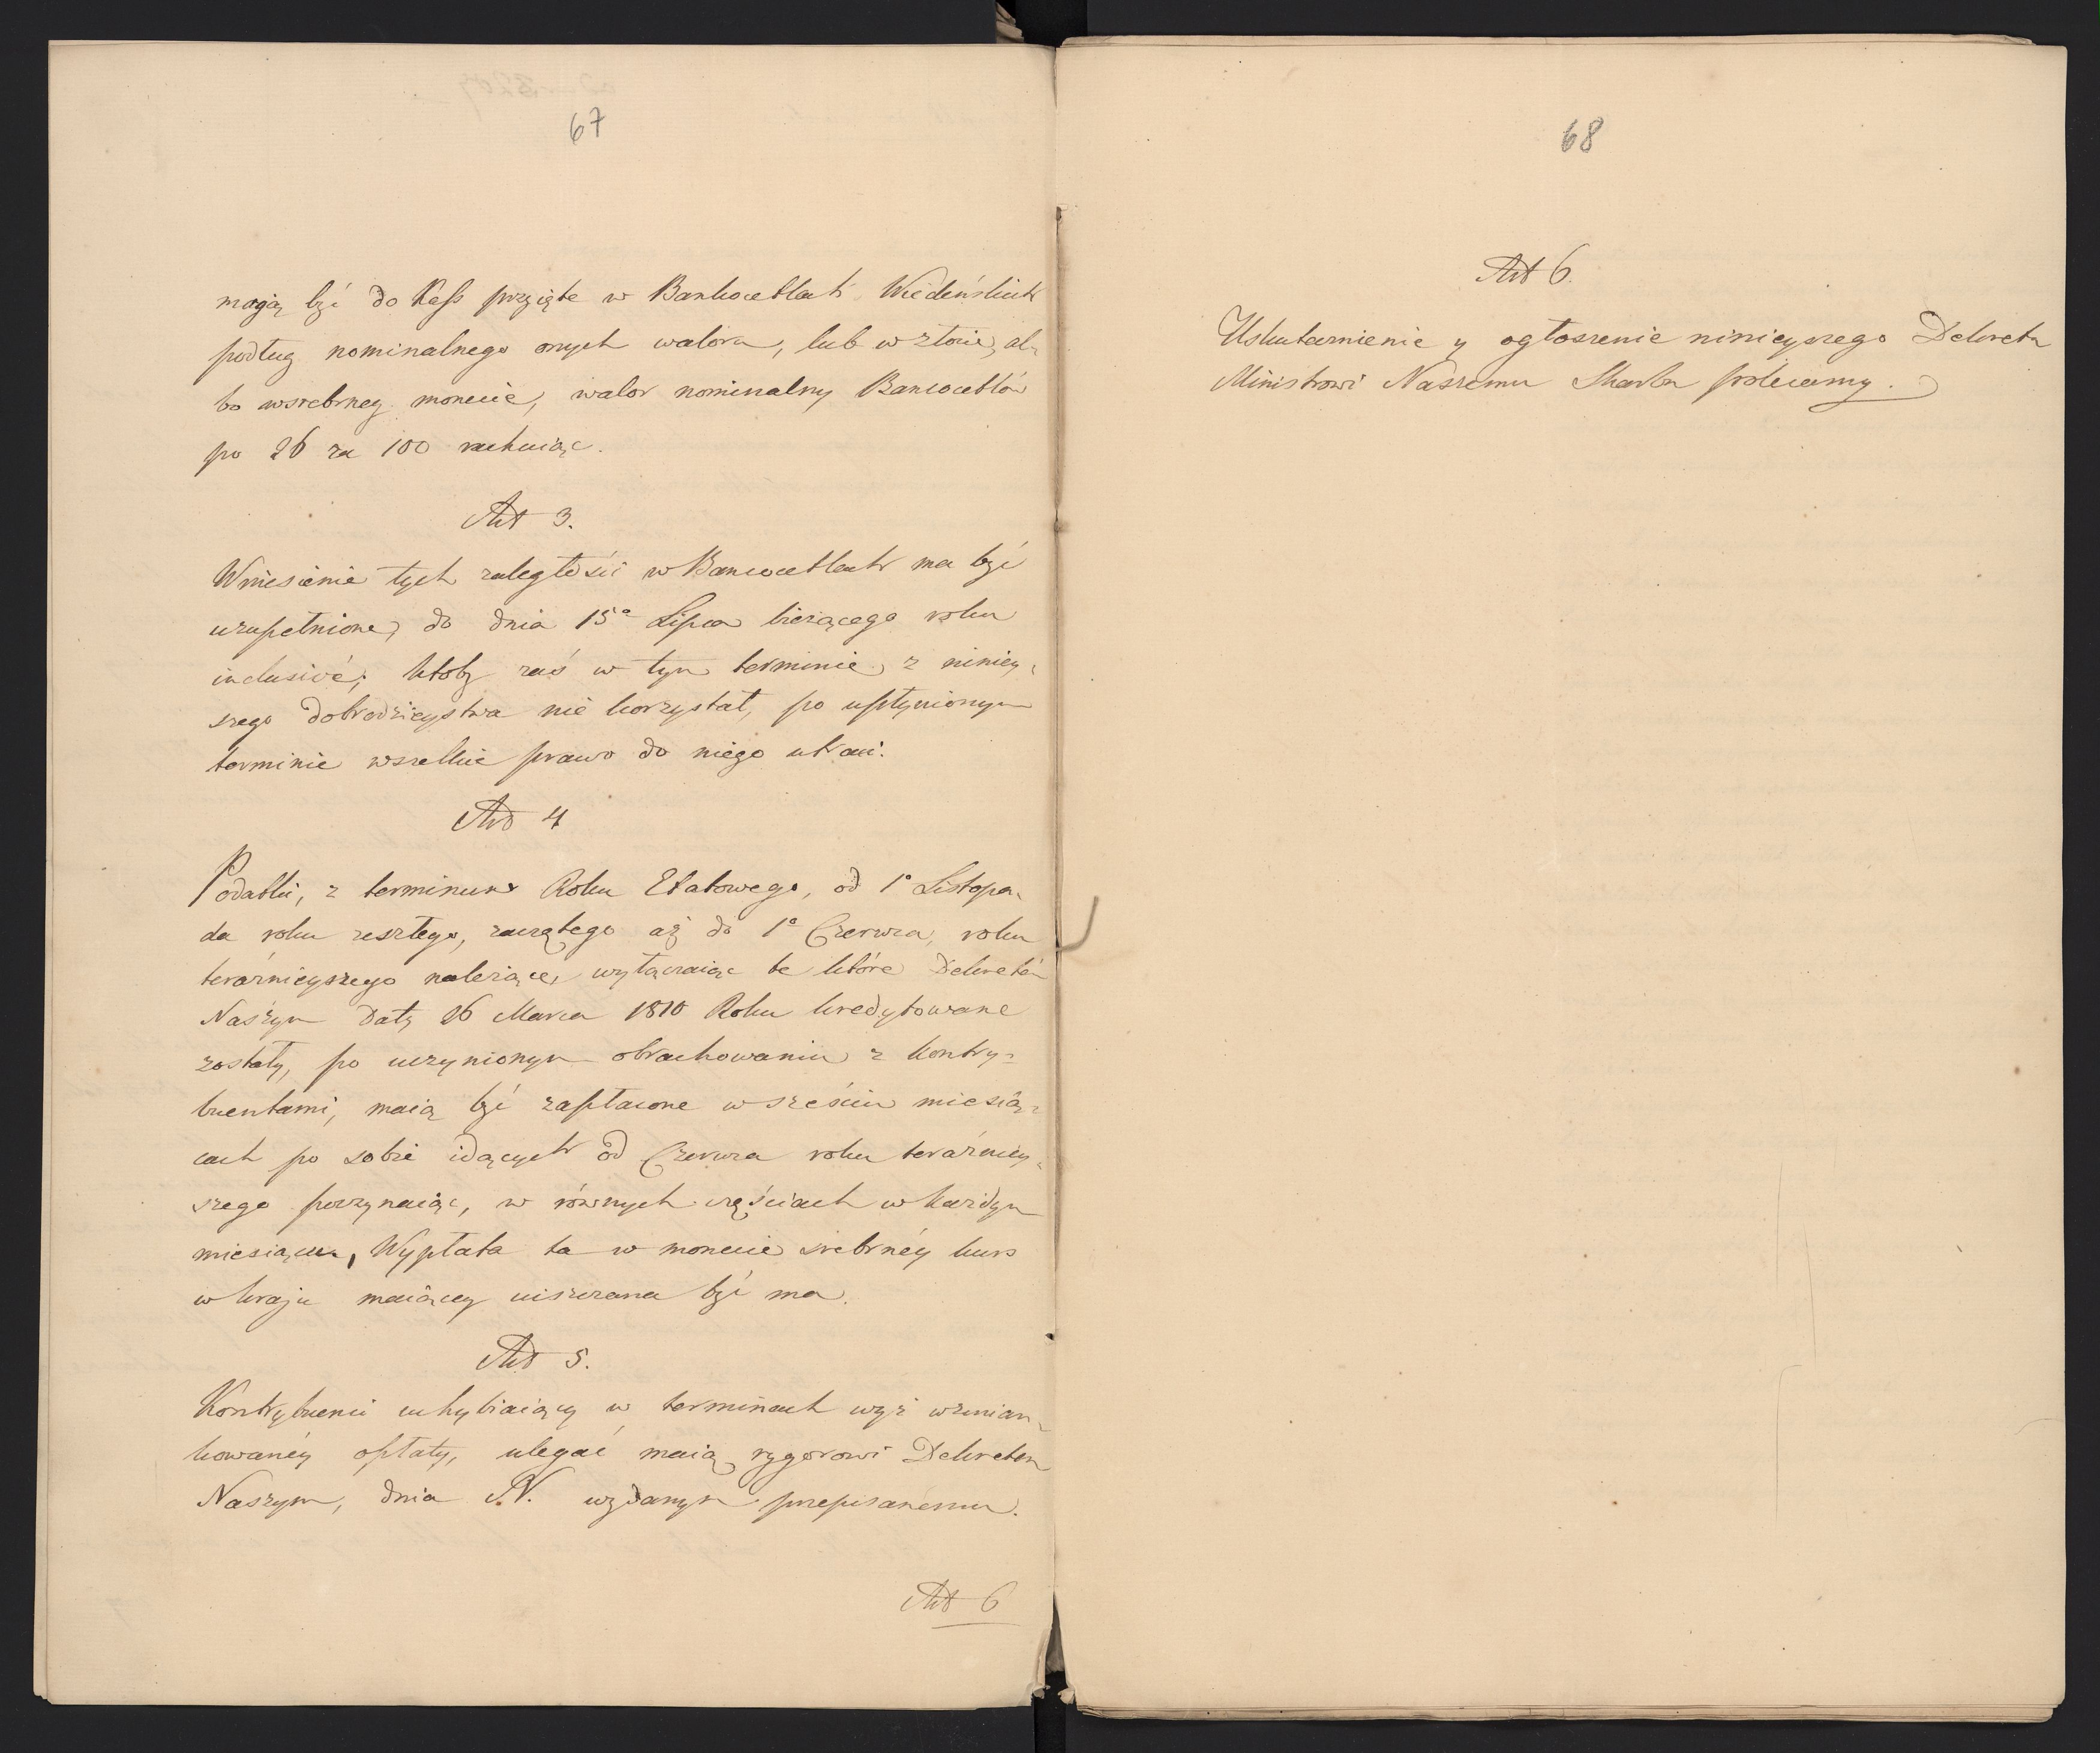 67
mogą być do Kass przyięte w Bankocetlach Wiedeńskich
podług nominalnego onych waloru, lub w złocie, al-
bo w srebrney monecie, walor nominalny Bancocetlów
po 26 za 100 rachuiąc.
Art 3.
Wniesienie tych zaległości w Bancocetlach ma być
uzupełnione, do dnia 15° Lipca bieżącego roku
inclusivé; ktoby zaś w tym terminie z niniey-
szego dobrodzieystwa nie korzystał, po upłynionym
terminie wszelkie prawo do niego utraci.
Art 4
Podatki, z terminów Roku Etatowego, od 1° Listopa-
da roku zeszłego, zaczętego aż do 1° Czerwca, roku
teraźnieyszego należące, wyłączaiąc te które Dekretem
Naszym Daty 26 Marca 1810 Roku kredytowane
zostały, po uczynionym obrachowaniu z kontry-
buentami, maią być zapłacone w sześciu miesią-
cach po sobie idących od Czerwca roku teraźniey-
szego poczynaiąc, w równych częściach w każdym
miesiącu, Wypłata ta w monecie srebrnéy kurs
w kraju maiącey uiszczana być ma.
Art 5.
Kontrybuenci uchybiaiący w terminach wyż wzmian-
kowanéy opłaty, ulegać maią rygorowi Dekretem
Naszym, dnia N. wydanym przepisanemu.
Art 6
68
Art 6.
Uskutecznienie y ogłoszenie ninieyszego Dekretu
Ministrowi Naszemu Skarbu polecamy.